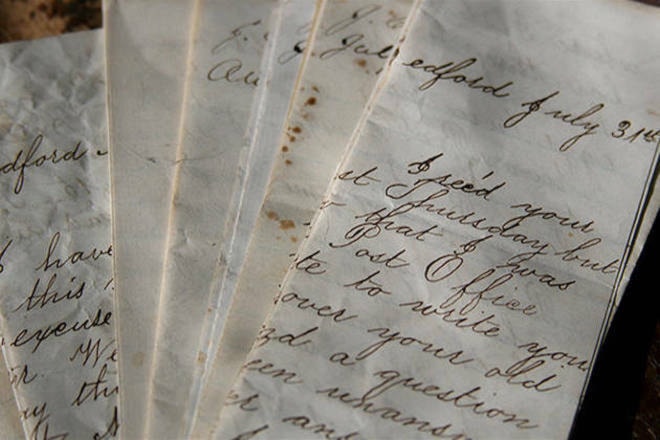 dford
I have
this
excuse
r. We
ay th
J.
Au
J.
Jul
edford July 31st
I rec'd your
st Thursday but
that I was
Post Office
te to write you
over your old
d a question
een unans
er an